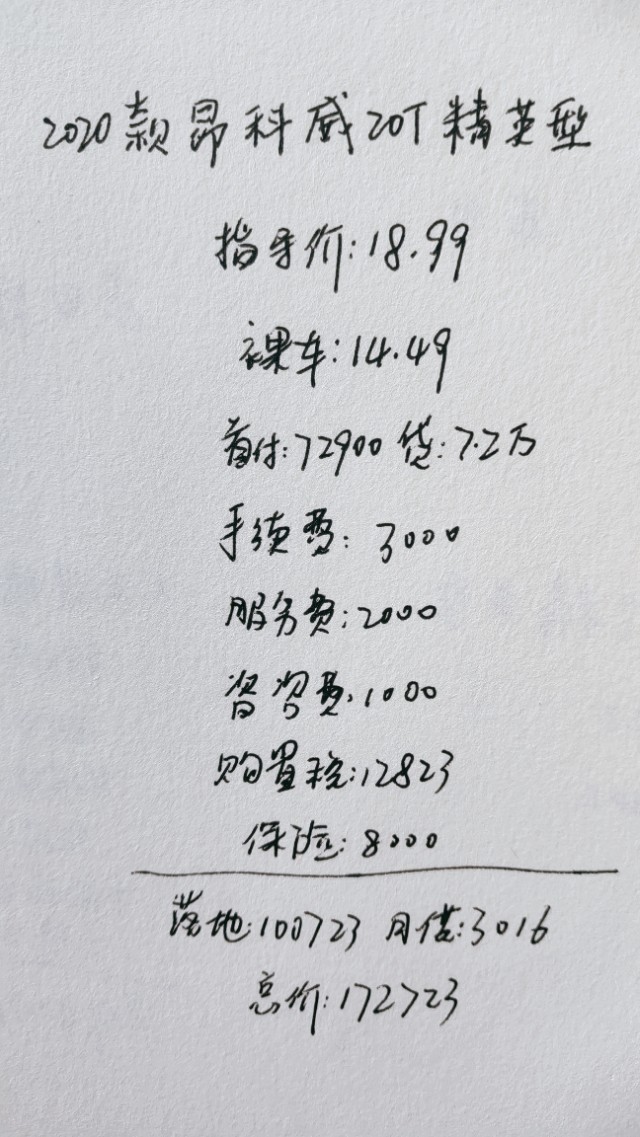 2020款昂科威20T精英型
指导价:18.99
裸车:14.49
首付:72900 贷:7.2万
手续费:3000
服务费:2000
咨询费:1000
购置税:12823
保险:8000
落地:100723 月偿:3016
总价:172723